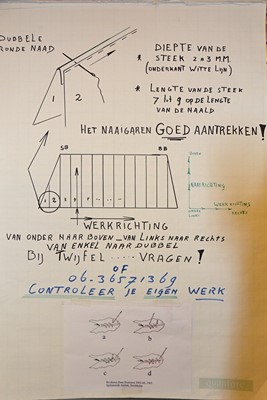 DUBBELE
RONDE NAAD
DIEPTE VAN DE
* STEEK 2 à 3 M.M.
(ONDERKANT WITTE LIJN)
* LENGTE VAN DE STEEK
7 tot 9 OP DE LENGTE
VAN DE NAALD
1 2
HET NAAIGAREN GOED AANTREKKEN!
SB BB
NAAIRICHTING
1 2 3 4
WERKRICHTING
WERKRICHTING
VAN ONDER NAAR BOVEN - VAN LINKS NAAR RECHTS
VAN ENKEL NAAR DUBBEL
BIJ TWIJFEL ..... VRAGEN!
OF
06-36571369
CONTROLEER JE EIGEN WERK
a b
c d